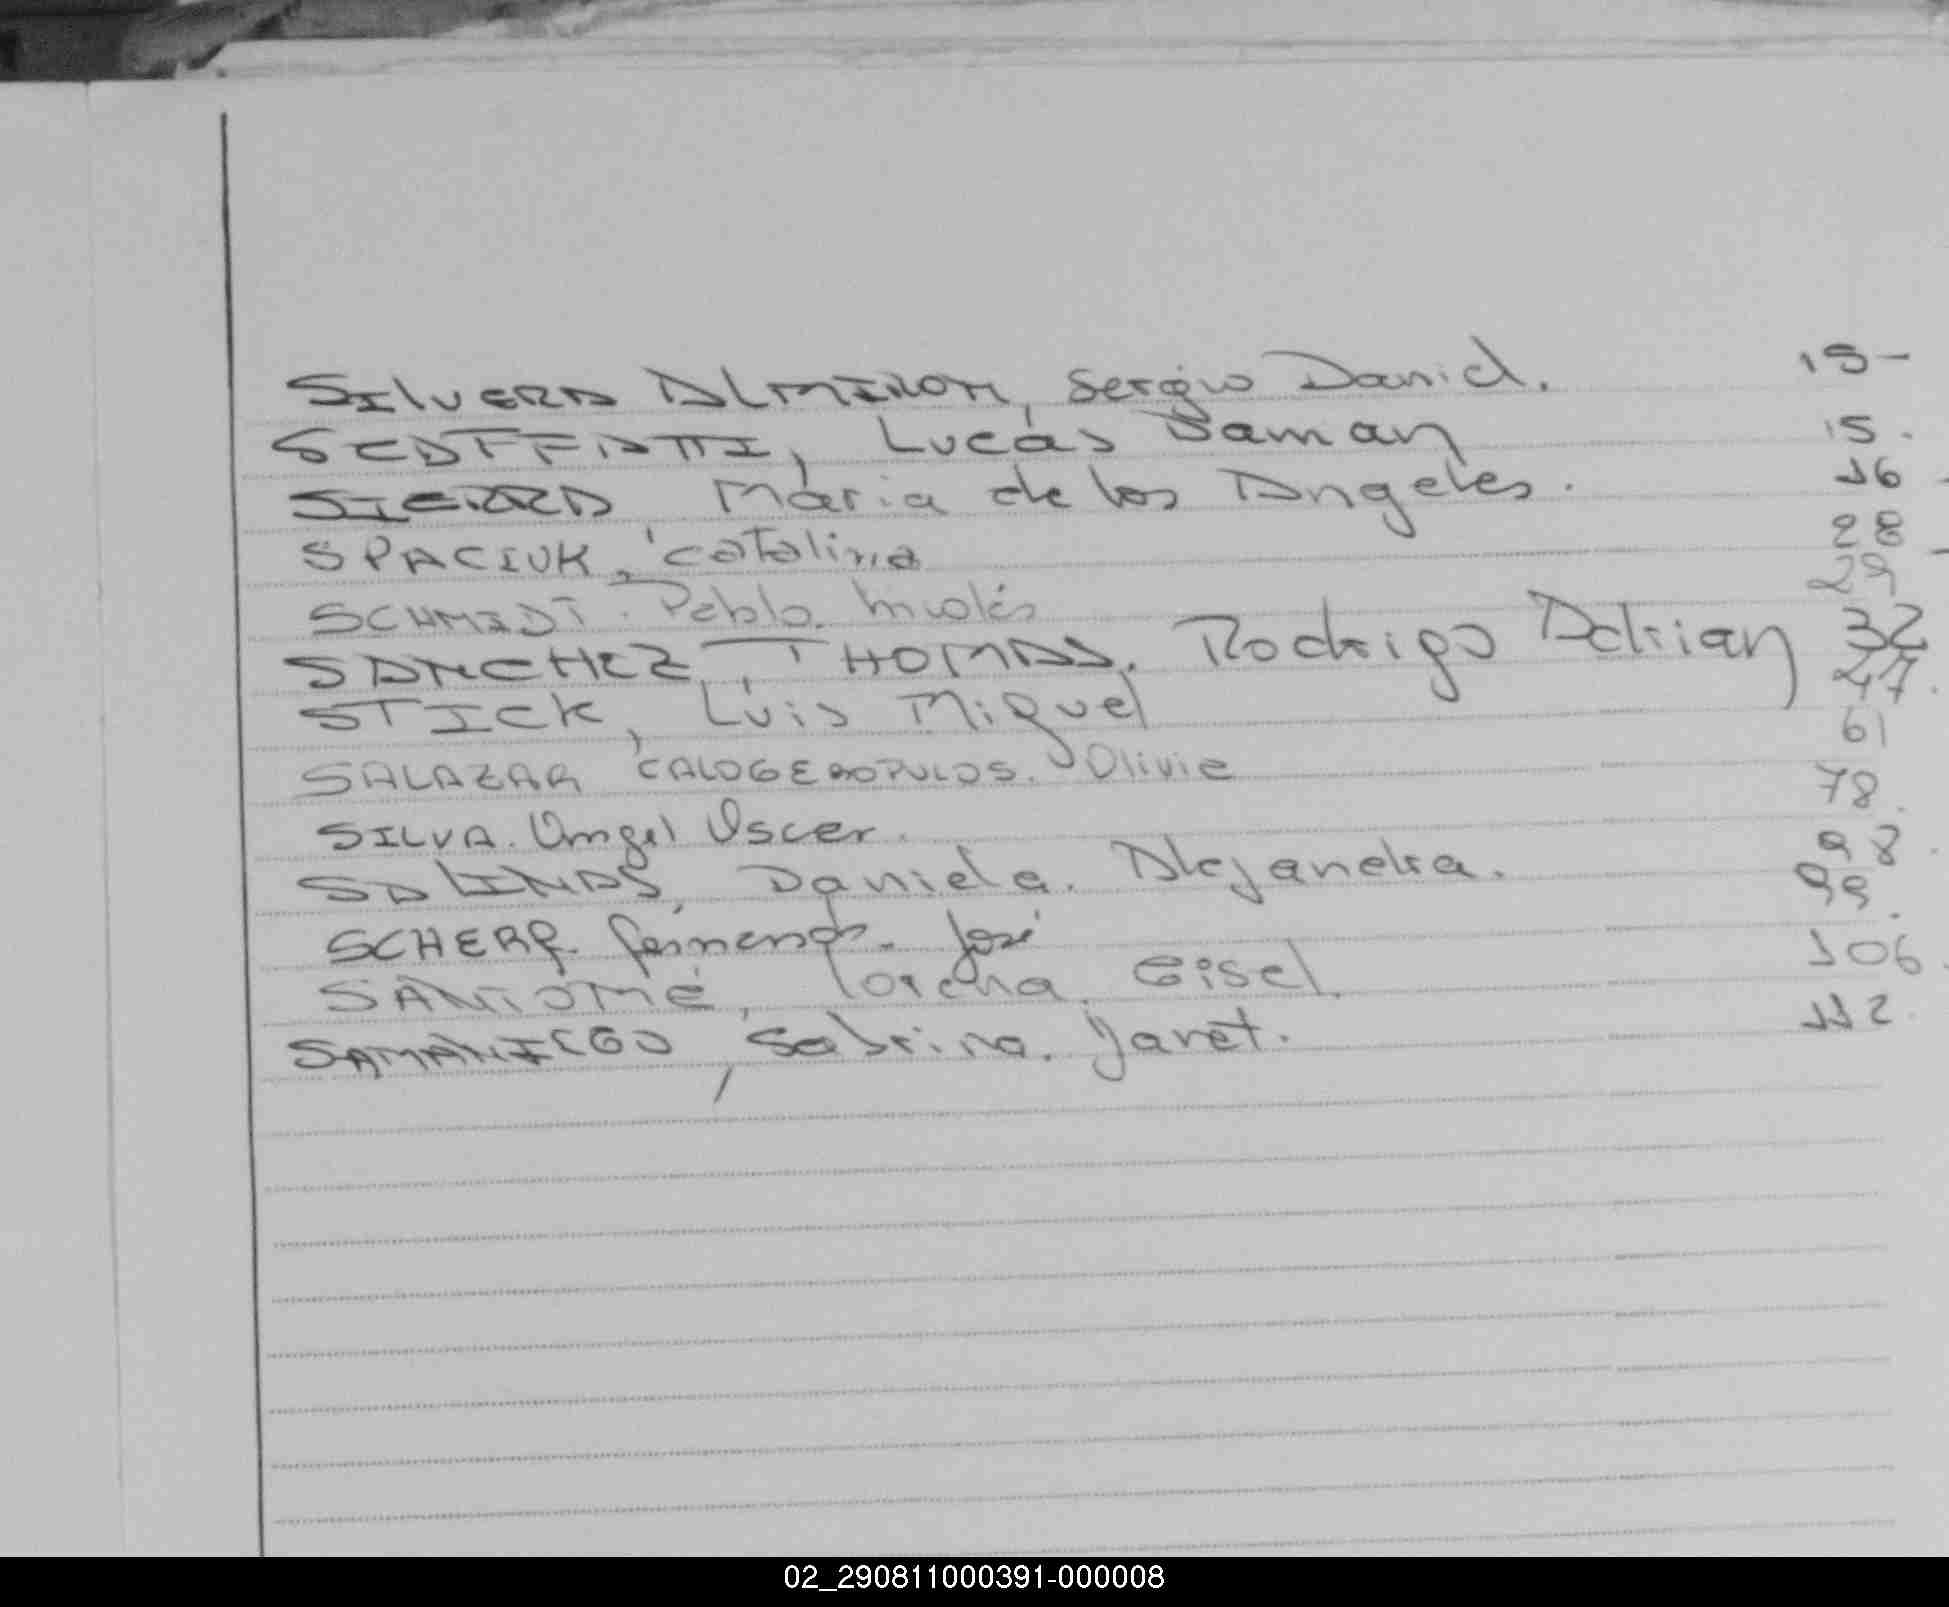 SILVERA ALMIRON, Sergio Daniel. 15-
SCAFFATTI, Lucas Daman 15.
SIERRA, Maria de los Angeles. 16
SPACIUK, Catalina 28
SCHMIDT. Pablo. Nicolás 29
SANCHEZ, THOMAS. Rodrigo Adrian 32
STICK, Luis Miguel 47.
SALAZAR CALOGEROPULOS. Olivia 61
SILVA. Angel Oscar. 78.
SALINAS, Daniela. Alejandra. 98.
SCHERF. Fernando. José 99.
SANTOMÉ, Lorena. Gisel. 106.
SAMANIEGO, Sabrina. Janet. 112.
02_290811000391-000008